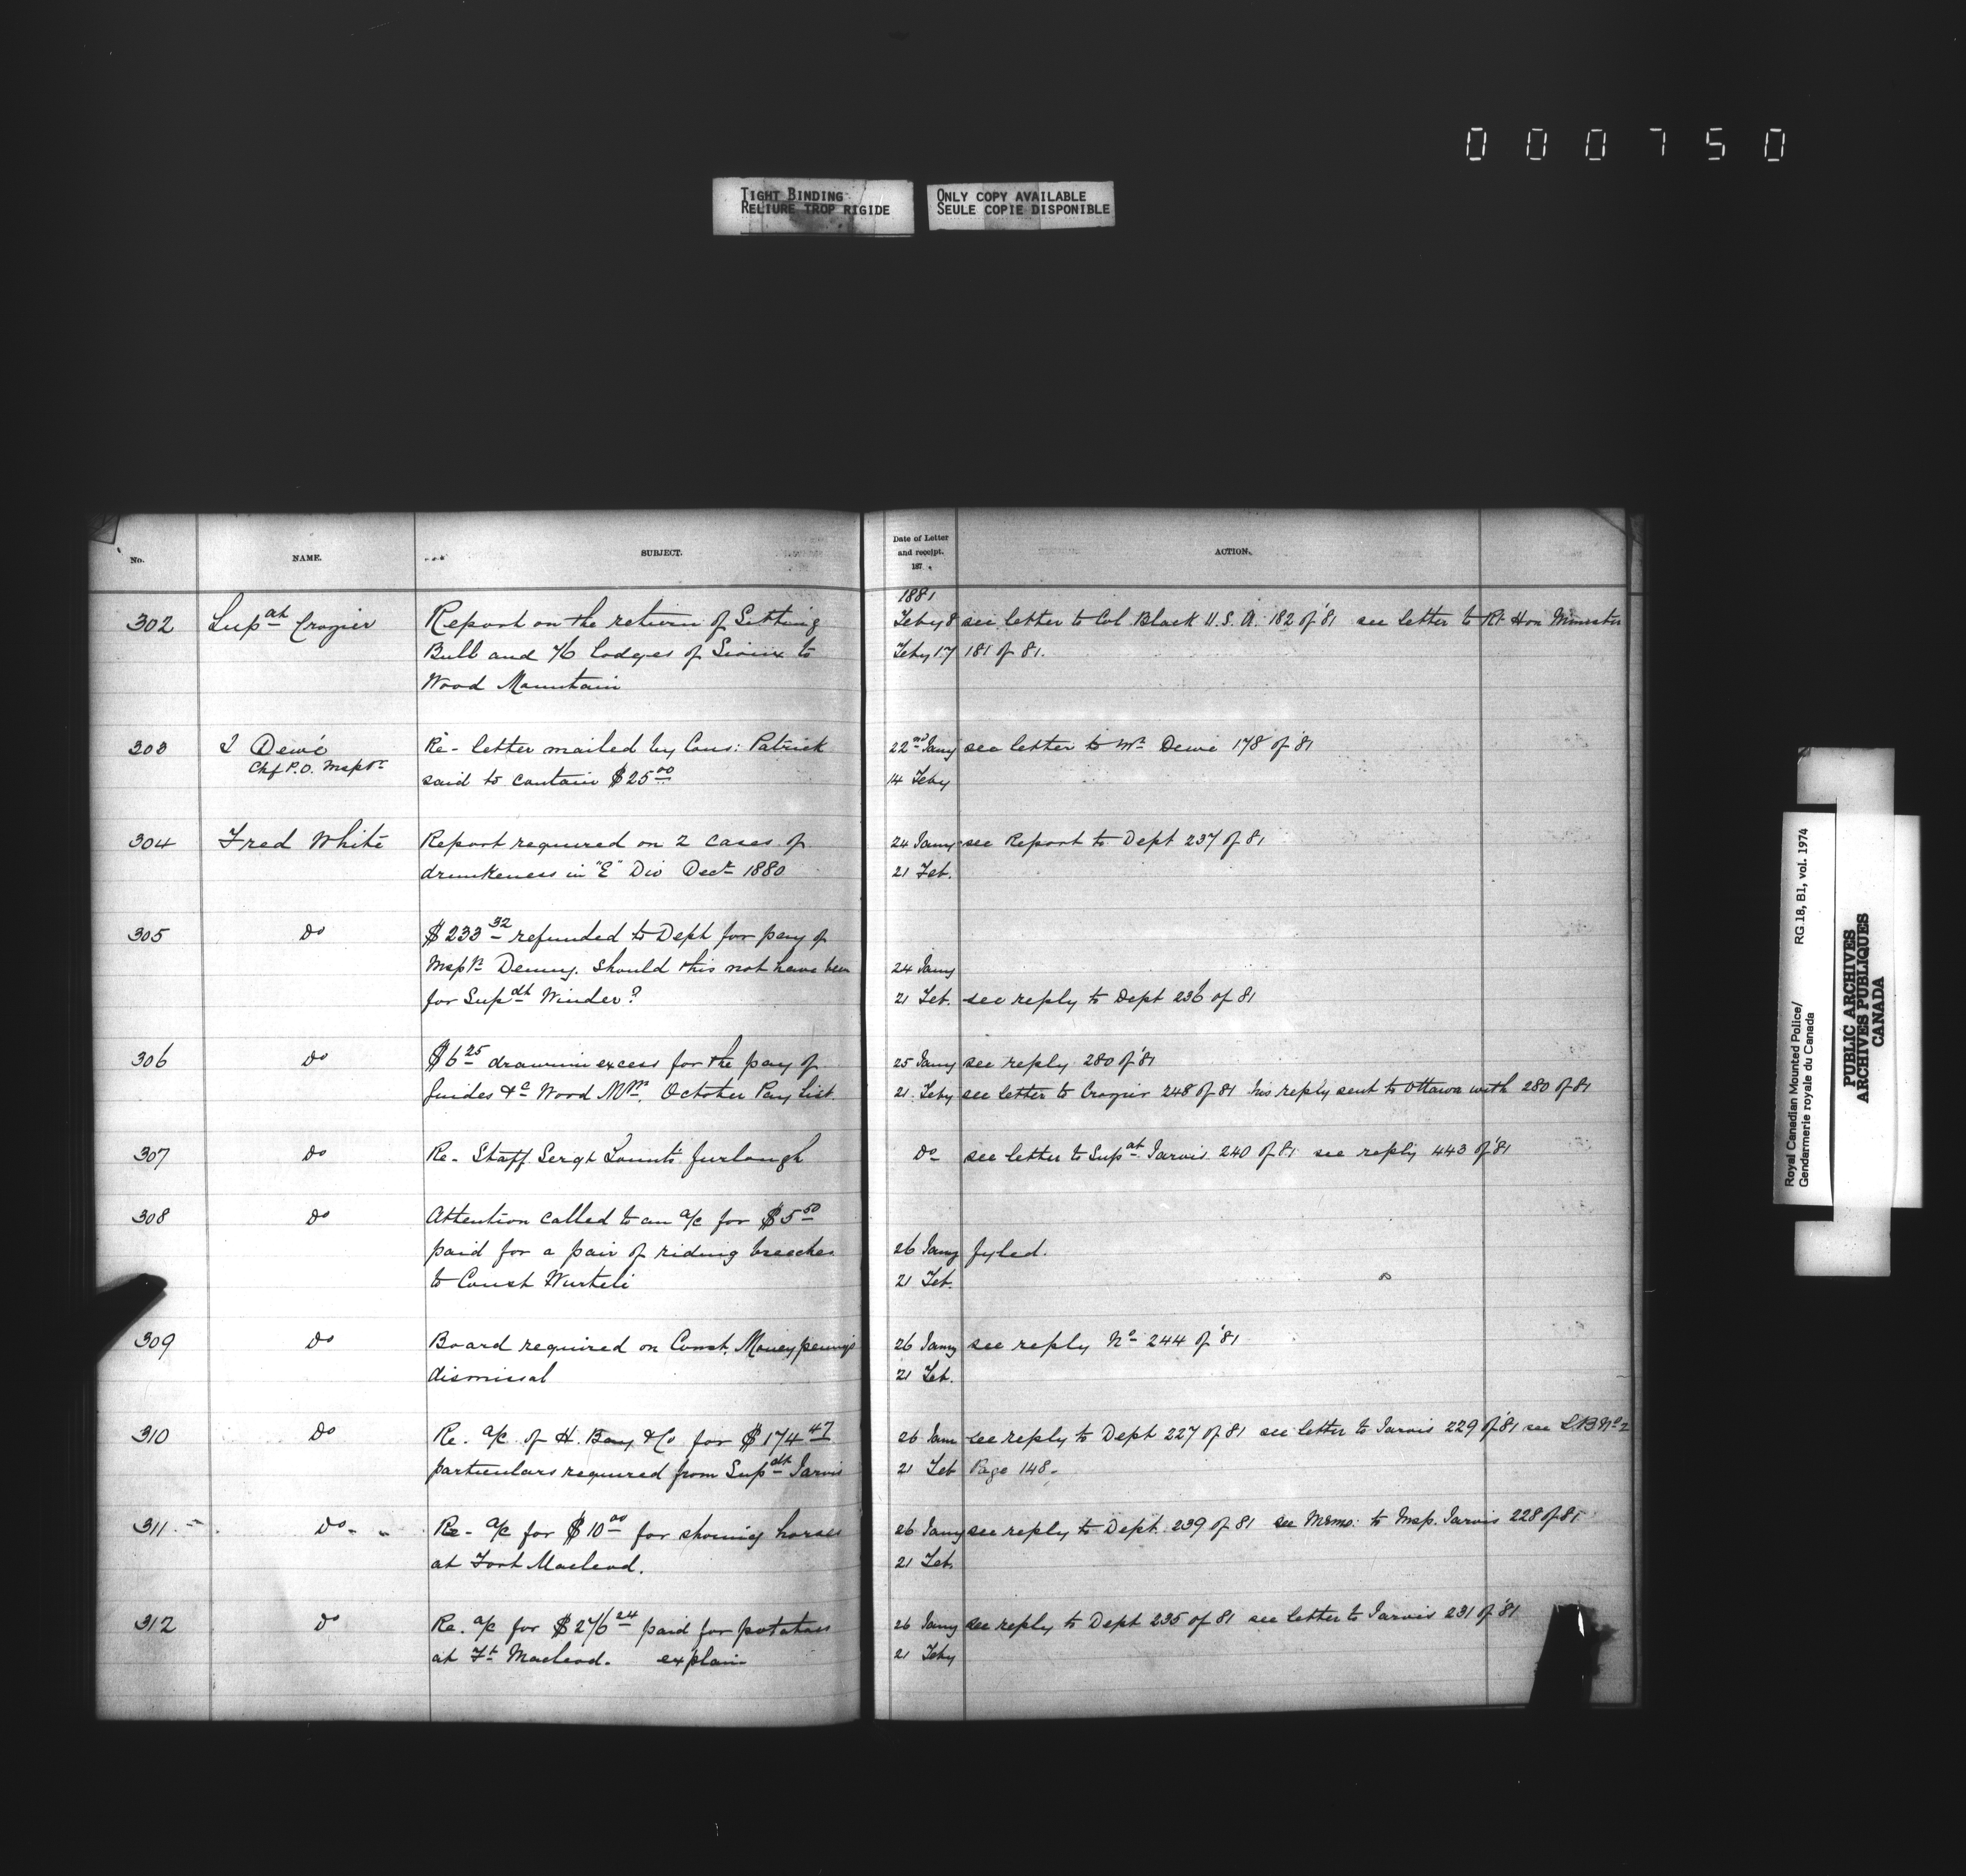 000750
TIGHT BINDING
RELIURE TROP RIGIDE
ONLY COPY AVAILABLE
SEULE COPIE DISPONIBLE
No.
NAME.
SUBJECT.
Date of Letter
and receipt.
187 .
ACTION.
1881
302 Supdt Crozier Report on the return of Sitting Feby 8 see letter to Col Black U.S.A. 182 of '81 see letter to Rt Hon Minister
Bull and 46 lodges of Sioux to Feby 17 181 of 81.
Wood Mountain
303 J Dewé Re- letter mailed by Cons: Patrick 22nd Jany see letter to Mr Dewe 178 of '81
Chf P.O. Inspr
said to contain $25 00 14 Feby
304 Fred White Report required on 2 cases of 24 Jany see Report to Dept 237 of 81
drunkeness in "E" Div Decr 1880 21 Feb.
305 Do $233 32 refunded to Dept for pay of
Inspr Denny. Should this not have been 24 Jany
for Supdt Winder? 21 Feb. see reply to Dept 236 of 81
306 Do $6 25 drawn in excess for the pay of 25 Jany see reply 280 of '81
Guides &c Wood Mtn. October Pay List. 21 Feby see letter to Crozier 248 of 81 his reply sent to Ottawa with 280 of 81
307 Do Re- Staff Sergt furlough Do see letter to Supdt Jarvis 240 of 81 see reply 443 of '81
308 Do Attention called to an a/c for $5 50
paid for a pair of riding breeches 26 Jany fyled.
to Const Wurtele 21 Feb.
309 Do Board required on Const. Moneypenny's 26 Jany see reply No 244 of '81
dismissal 21 Feb.
310 Do Re. a/c of H. Bay & Co for $174 47 26 Jan see reply to Dept 227 of 81 see letter to Jarvis 229 of '81 see L.B No 2
particulars required from Supdt Jarvis 21 Feb Page 148.
311 Do Re- a/c for $10 00 for shoeing horses 26 Jany see reply to Dept. 239 of 81 see Memo: to Insp. Jarvis 228 of 81
at Fort Macleod. 21 Feb.
312 Do Re. a/c for $246 24 paid for potatoes 26 Jany see reply to Dept 235 of 81 see letter to Jarvis 231 of '81
at Ft Macleod. explain 21 Feby
Royal Canadian Mounted Police/ RG.18, B1, vol. 1974
Gendarmerie royale du Canada
PUBLIC ARCHIVES
ARCHIVES PUBLIQUES
CANADA